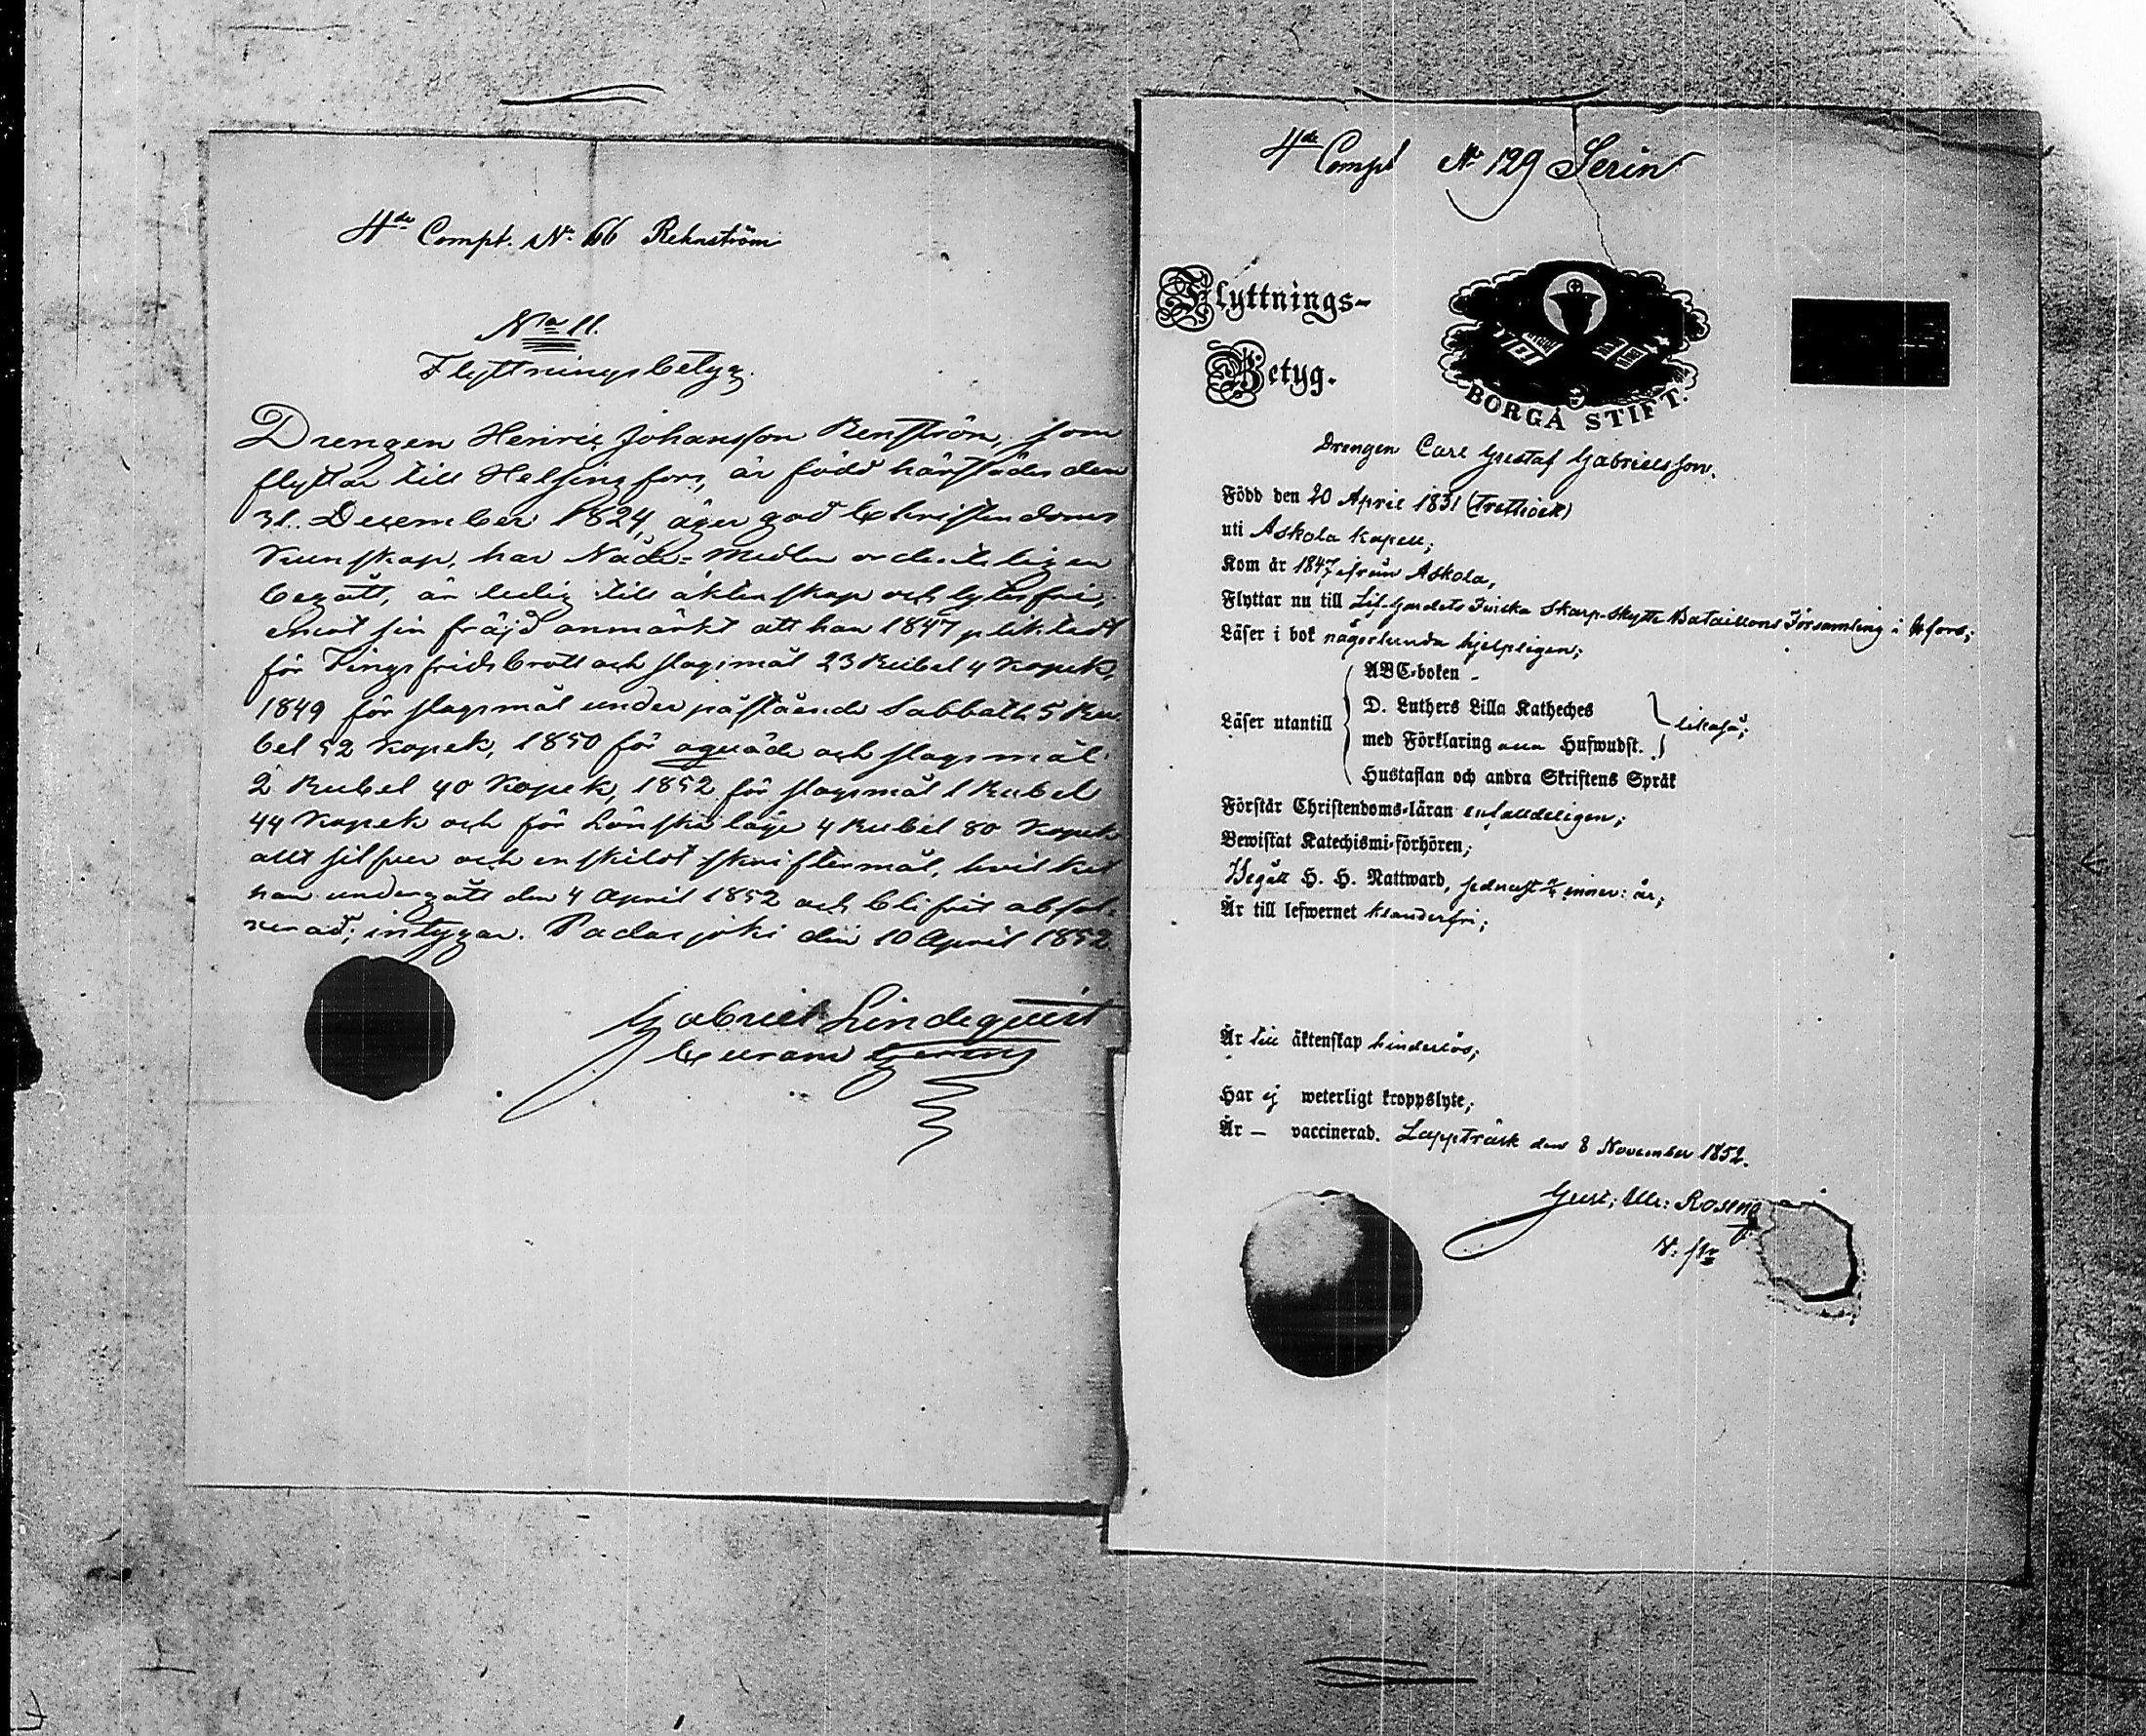 4de Compt. No 66 Rehnström
No 11.
Flyttningsbetyg.
Drengen Henric Johansson Renström, som
flyttar till Helsingfors, är född härstädes den
31. December 1824, äger god Christendoms
kunskap, har Nåde-Medlen ordenteligen
begått, är ledig till äktenskap och lytesfri,
emot sin fräjd anmärkt att han 1847 pliktadt
för Tingsfridsbrott och slagsmål 23 Rubel 4 Kopek,
1849 för slagsmål under påstående Sabbath 5 Ru-
bel 52 Kopek, 1850 för oqväde och slagsmål
2 Rubel 40 Kopek, 1852 för slagsmål 1 Rubel
44 Kopek och för Lönskaläge 4 Rubel 80 Kopek
allt silfver och enskildt skriftermål, hvilket
han undergått den 4 April 1852 och blifvit absol-
verad; intygar. Padasjoki den 10 April 1852
Gabriel Lindeqvist
Curam gerens
4de Compt No 129 Serin
Flyttnings-
Betyg.
BORGÅ STIFT.
Drengen Carl Gustaf Gabrielsson.
Född den 20 April 1831 (trettioett)
uti Askola Kapell;
Kom år 1847 ifrån Askola,
Flyttar nu till Lif-Gardets Finska Skarp-skytte Bataillons Församling i Hfors;
Läser i bok någorlunda hjelpligen;
ABC-boken -
D. Luthers Lilla Katheches
Läser utantill likaså;
med Förklaring Hufwudst.
Hustaflan och andra Skriftens Språk
Förstår Christendoms-läran enfalldeligen;
Bewistat Katechismi-förhören;
Begått H. H. Nattward, sednast innev: år;
Är till lefwernet klanderfri;
Är till äktenskap hinderlös;
Har ej weterligt kroppslyte;
Är — vaccinerad. Lappträsk den 8 November 1852.
Gust: